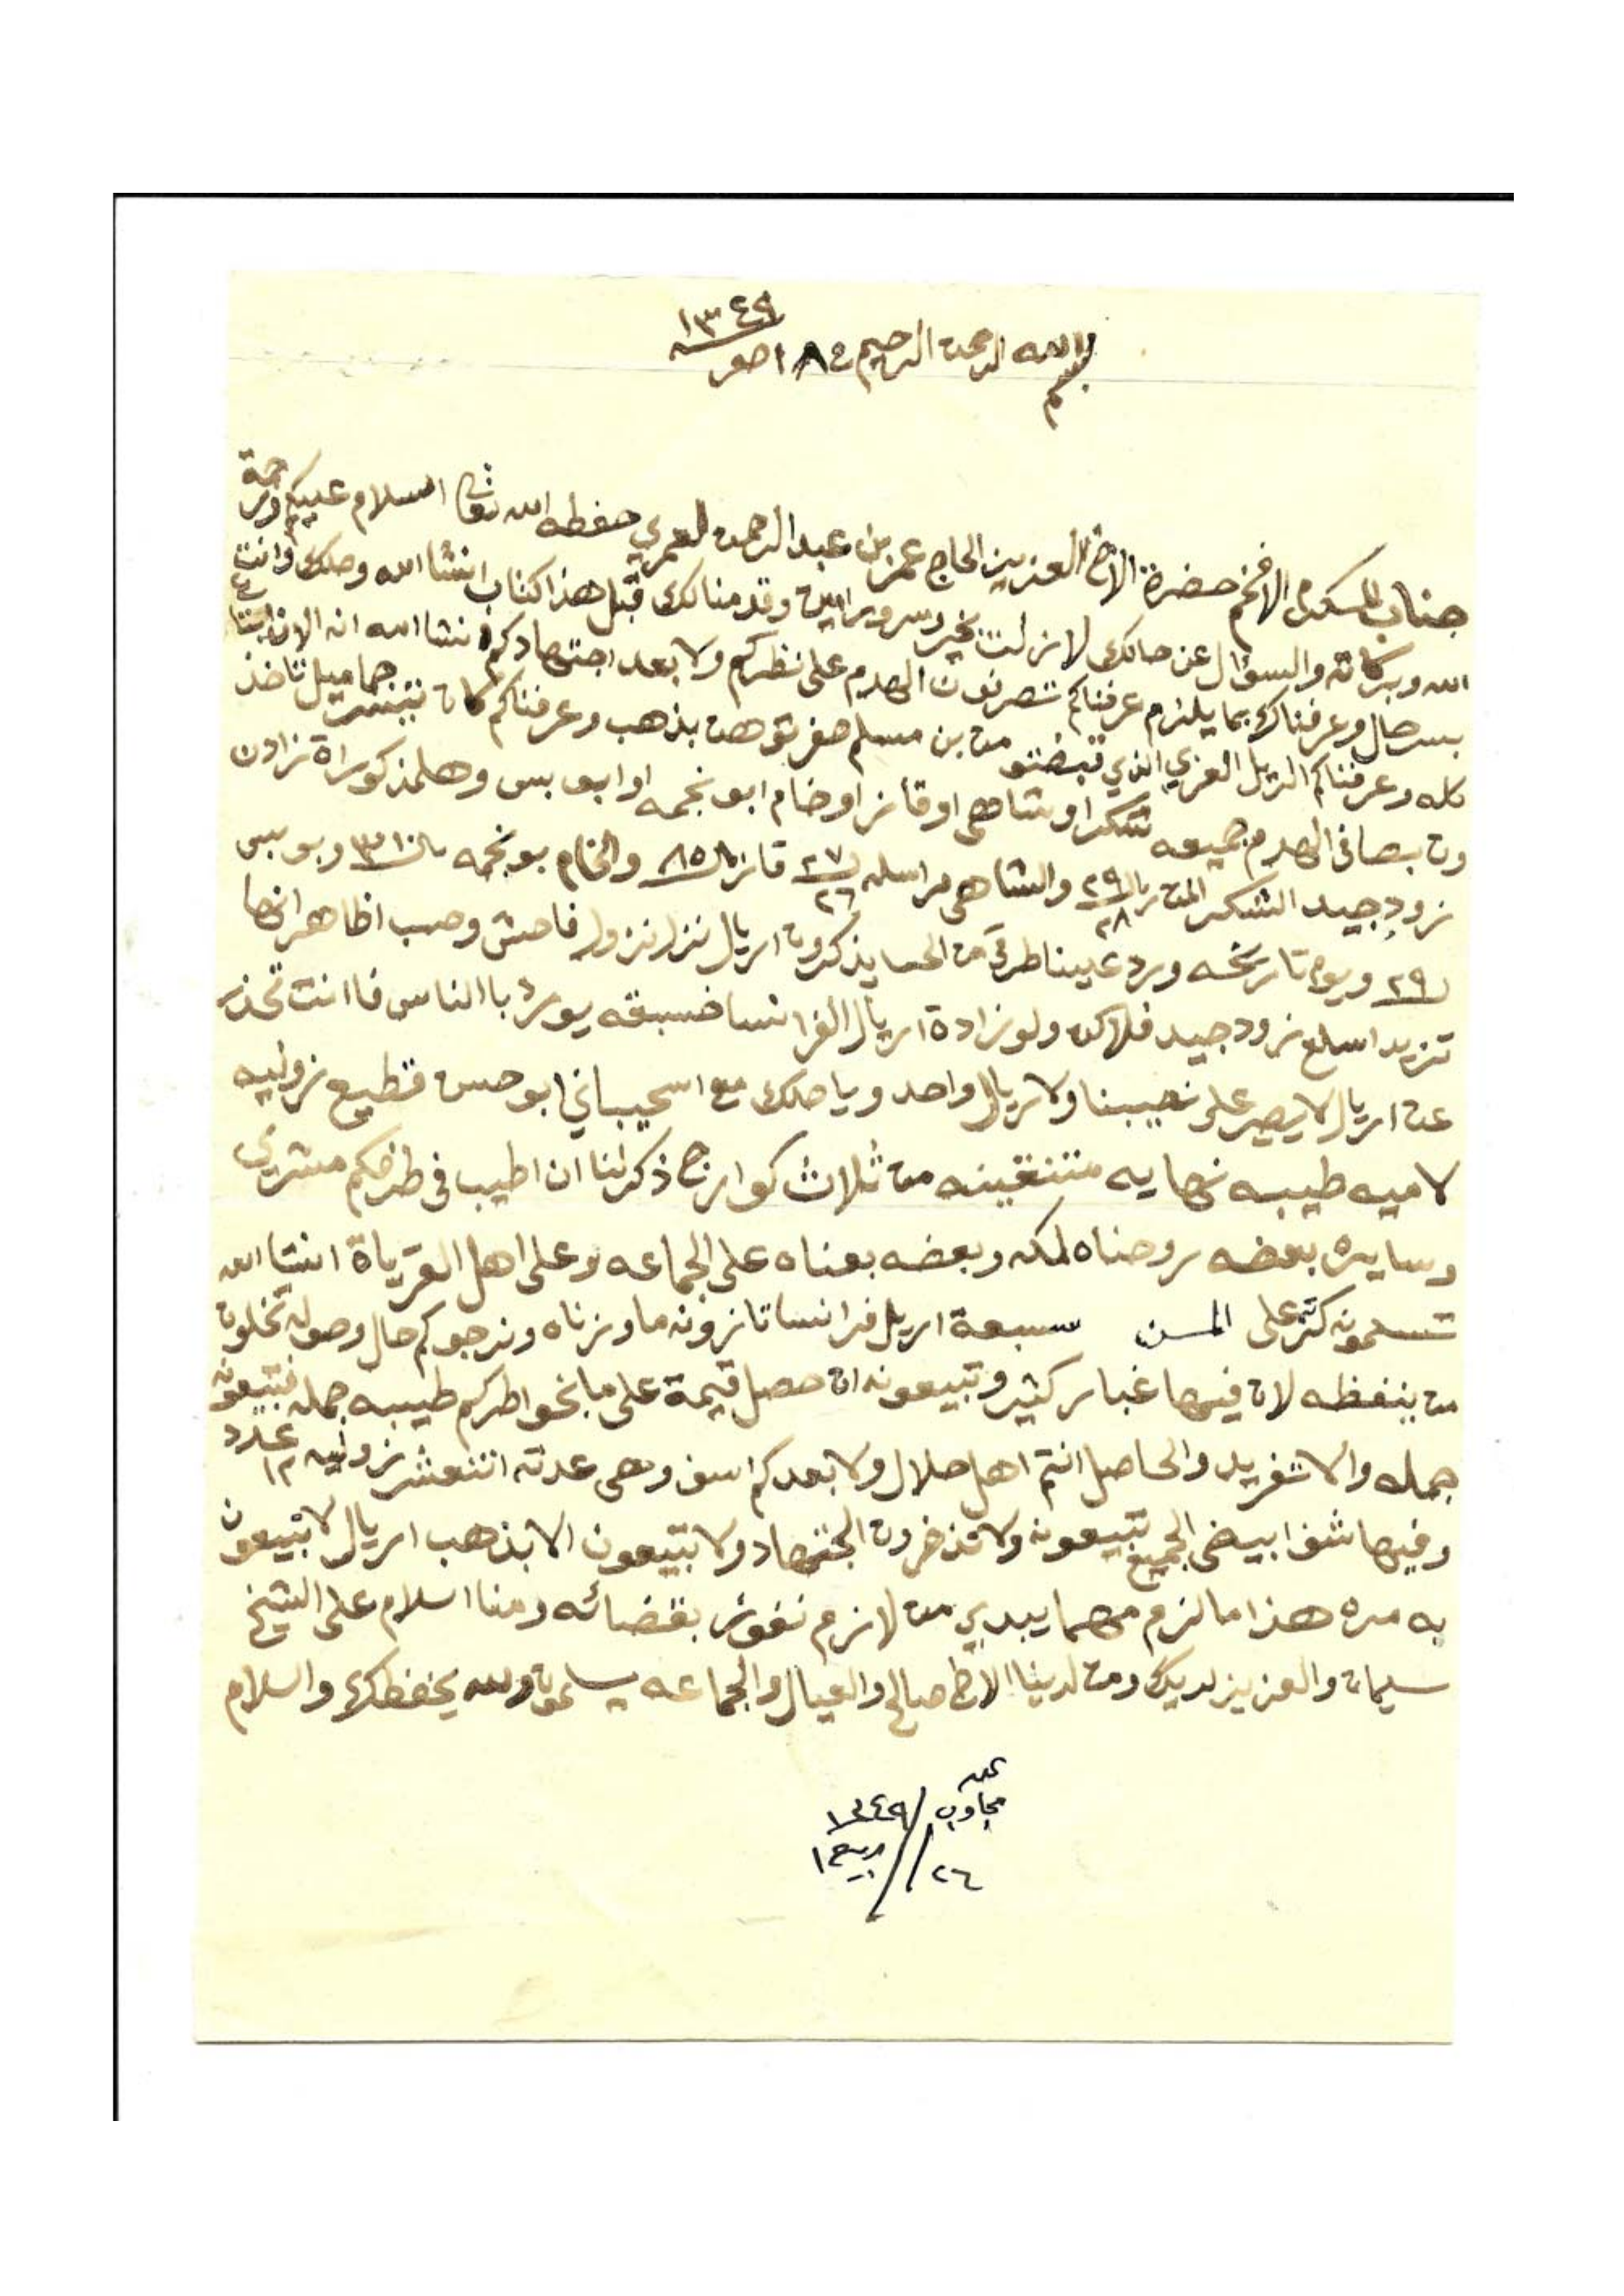 ١٣٤٩
بسم الله الرحمن الرحيم ١٨ صفر
جناب المكرم الافخم حضرة الاخ العزيز الحاج عمر بن عبدالرحمن العمري حفظه الله تعالى السلام عليكم ورحمة
الله وبركاته والسؤال عن حالك لازلت بخير وسرور امين وقدمنا لك قبل هذا كتاب انشاالله وصلك وانت
بسر حال وعرفناك بما يلزم عرفناكم تصرفون الهدم على نظركم ولا بعد اجتهادكم انشاالله انه الان
كله وعرفناكم الريل العربي الذي قبضتو من بن مسلم صفر بذهب وعرفناكم كان تيسر حماميل تاخذ
ون بصافي الهدم جميعه شكر او شاهي او قاز او خام ابو نجمه او ابو بس وهلمذكوراة زادن
زود جيد الشكر المن ريال ٢٩ والشاهي ٢٧ قاز ريال ٨٥ والخام بو نجمه ٣١ وبو بس
٢٨ ٢٦
٢٩ ويوم تاريخه ورد علينا من الحسا يذكرون اريال نزل نزول فاحش وحسب اظاهر انها
تزيد اسلع زود جيد فلاكن ولو زادة اريال الفرانسا يورد باالناس فاانت تحذر
عن اريال لا يصير على نصيبنا ولا ريال واحد وياصلك مع اسحيباني ابو حسن قطيع زوليه
لاميه طيبه نهايه متنقينه من ثلاث كوارج ذكرلنا ان اطيب في طرفكم مشترى
وسايره بعضه روحناه لمكه وبعضه بعناه على الجماعه وعلى اهل القرياة انشاالله
تسلمونه كثر على المسن سبعة اريل فرانسا تازونه ما وزناه ونرجوكم حال وصوله تخلون
من ينفظه لان فيها غبار كثير وتبيعونه ان حصل قيمة على ما بخواطركم طيبه جمله فتبيعونه
جمله والا تفريد والحاصل انتم اهل حلال ولا بعدكم اسف وهي عدته اثنعشر زوليه عدد ١٢
وفيها شف ابيض الجميع تبيعونه ولا تذخرون الجتهاد ولا تبيعون الا بذهب اريال لا تبيعون
به مره هذا ما لزم مهما يبدي من لازم نفوز بقضائه ومنا اسلام على الشيخ
سليمان والعزيز لديك ومن لدينا الاخ صالح والعيال والجماعه يسلمون والله يحفظك واسلام
مجاوب ١٣٤٩
٢٦ ربيع ١